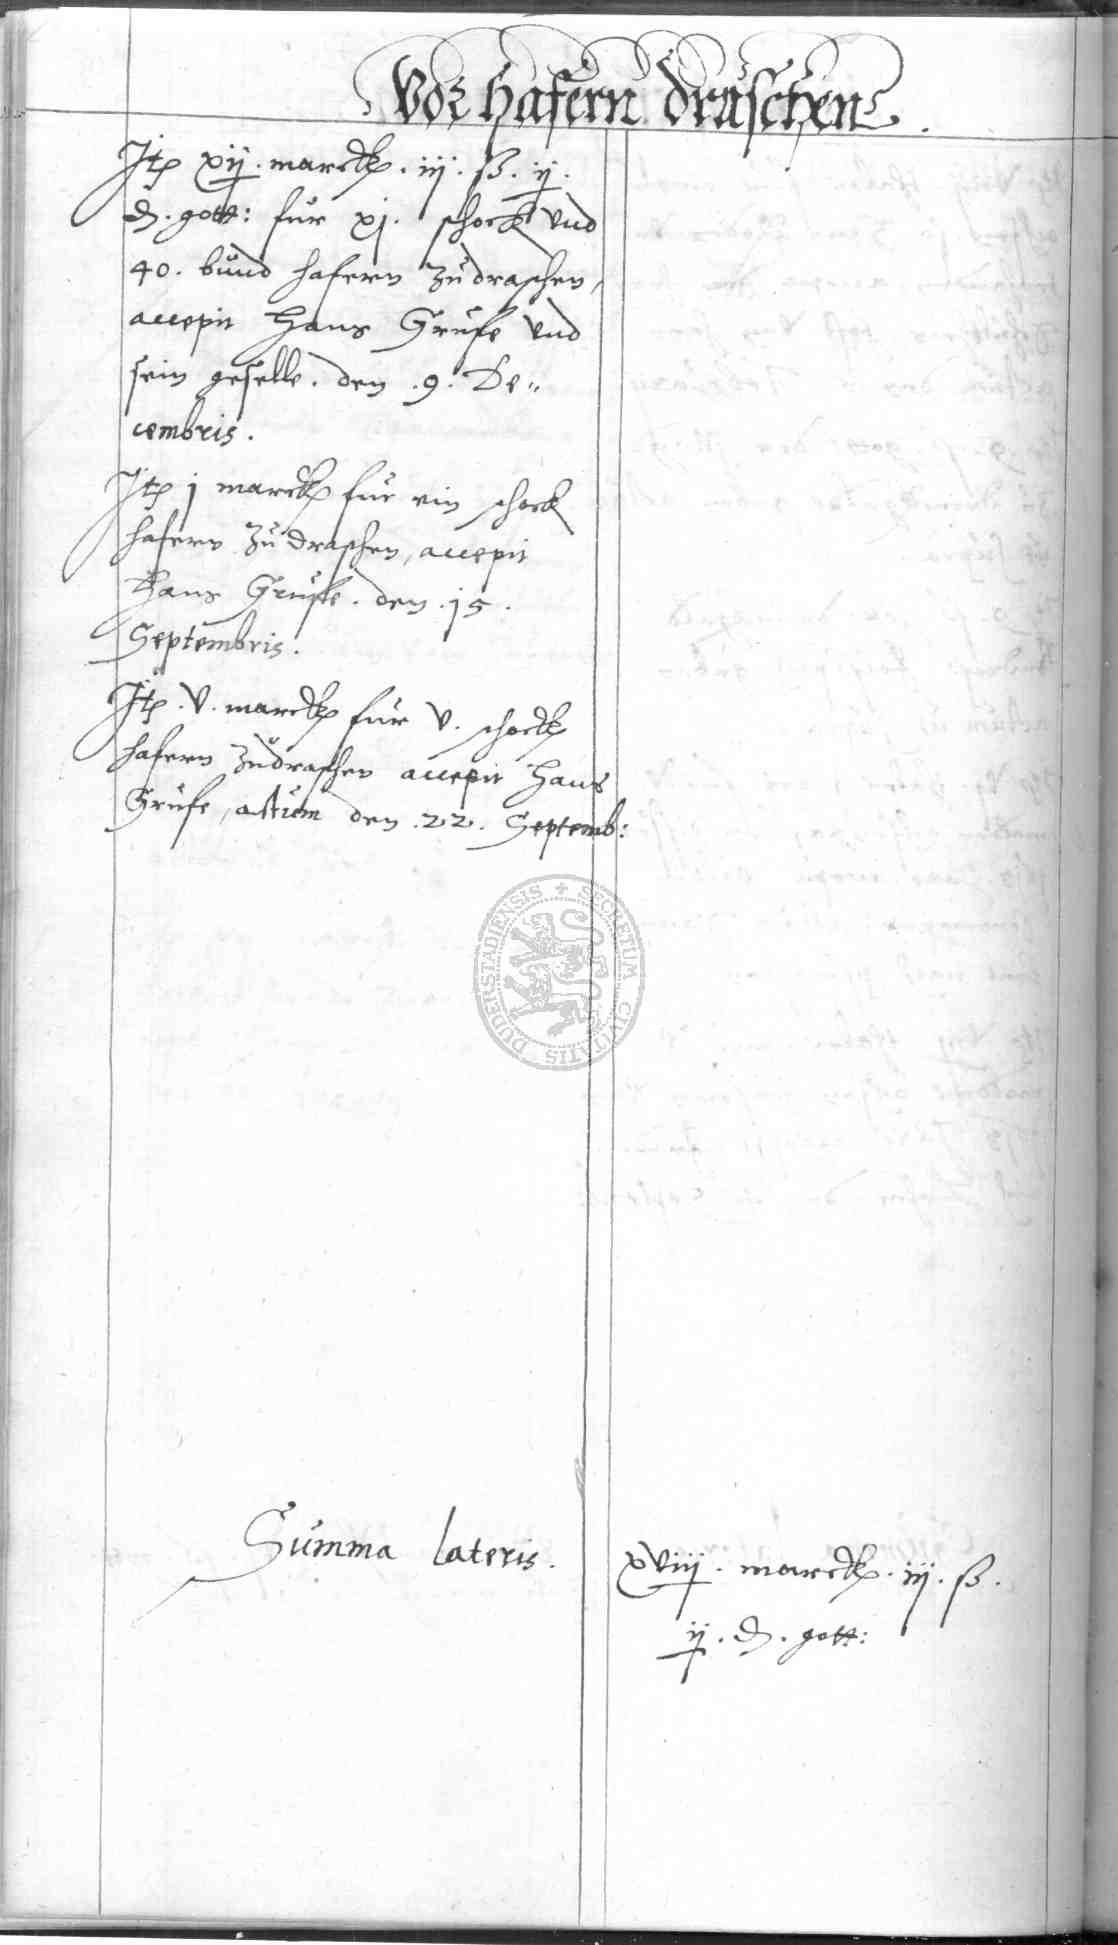 Vor hafern draschen.
Jtē xij. marck. iij. ß. ij.
₰. gott: für xj. schock vnd
40. bund hafern zudraschen,
accepit Hans Grufe vnd
sein geselle. den .9. De„
cembris.
Jtē j marck für ein schock
hafern zu draschen, accepit
Hans Grufe. den .15.
Septembris.
Jtē .V. marck für V. schock
hafern zudraschen accepit Hans
Grufe, actum den .22. Septemb:
SECRETUM CIVITATIS DUDERSTADIENSIS
Summa lateris.
xviij. marck. iij. ß.
ij. ₰. gott: